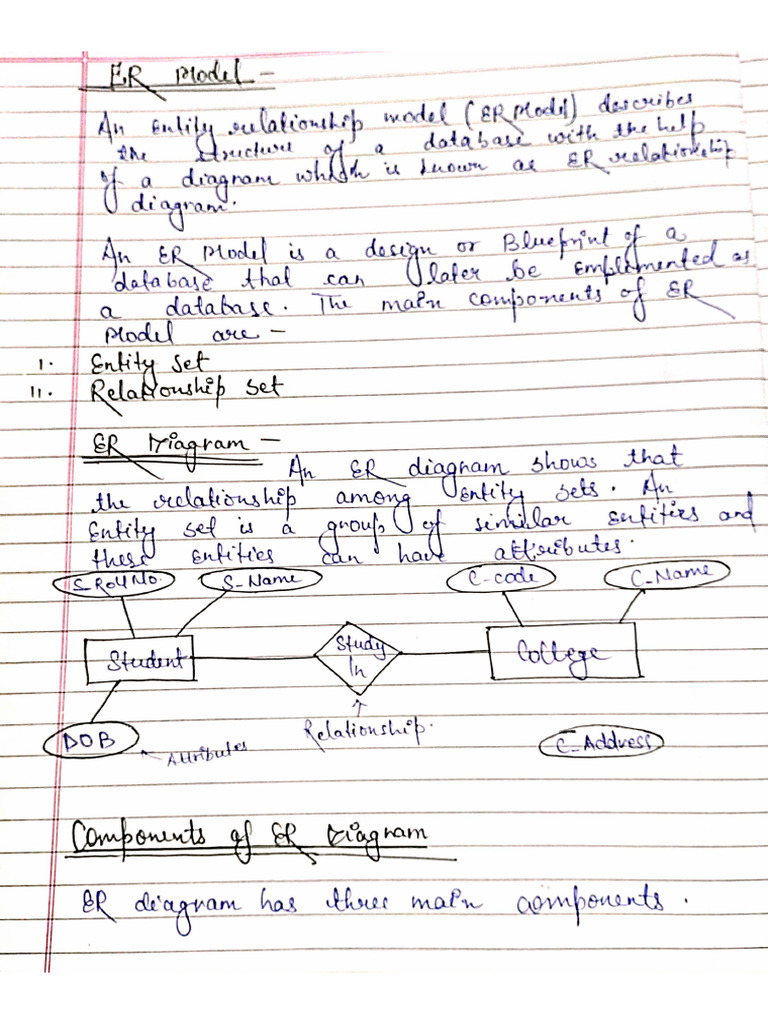 ER Model -
An Entity relationship model (ER Model) describes
the structure of a database with the help
of a diagram which is known as ER relationship
diagram.
An ER Model is a design or Blueprint of a
database that can later be emplemented as
a database. The main components of ER
Model are -
I. Entity set
II. Relationship set
ER Diagram -
An ER diagram shows that
the relationship among entity sets. An
Entity set is a group of similar entities and
these entities can have attributes.
S_Roll No. S_Name C-code C_Name
Student Study In College
DOB Attributes Relationship. C_Address
Components of ER Diagram
ER diagram has three main components.